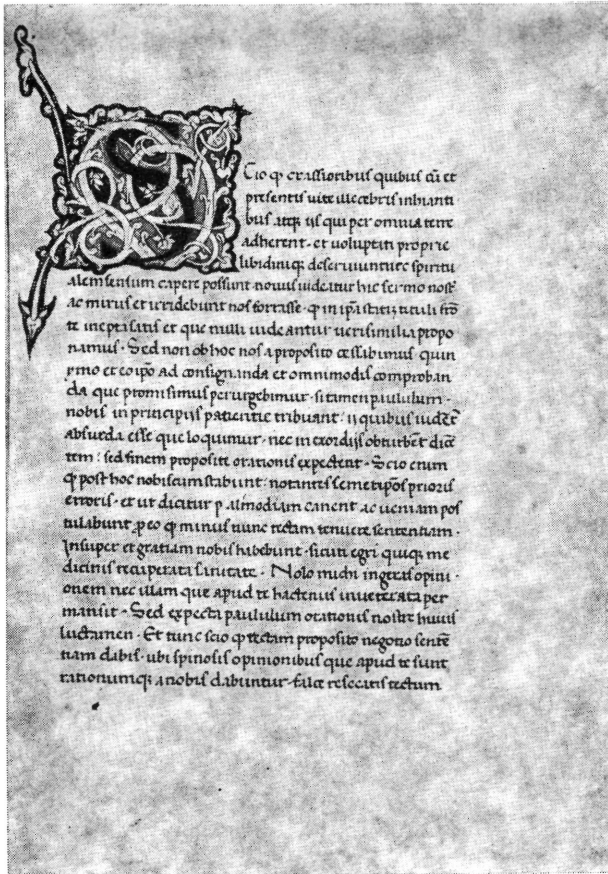 Scio qͥ crassioribus quibus cū et
presentis uite illecebris inhianti
bus atqꝫ iis qui per omnia terre
adherent · et uoluptati proprie
libidiniqꝫ deseruiunt : hunc spiritu
alem sensum capere possunt nouus uideatur hic sermo nosṫ
ac mirus et irridebunt nos fortasse · ꝙ in ip̄a statī tituli frō
te inepta satis et que nulli uideantur uerisimilia propo
namus · Sed non ob hoc nos a proposito cessabimus quin
ymo et eo ip̄o ad consignanda et omnimodis comproban
da que promisimus perurgebimur · si tamen paululum ·
nobis in principiis patientie tribuant : ii quibus uidēt̄
absurda esse que loquimur · nec in exordiis obturbēt dicē
tem : sed finem proposite orationis expectent · Scio enim
ꝙ post hoc nobiscum stabunt · notantes semetip̄os prioris
erroris · et ut dicitur palmodiam canent ac ueniam pos
tulabunt ꝓ eo ꝙ minus nunc rectam tenuere sententiam ·
Insuper et gratiam nobis habebunt · sicuti egri quiqꝫ me
dicinis recuperata sanitate · Nolo michi ingeras opini ·
onem nec illam que apud te hactenus inueterata per
mansit · Sed expecta paululum orationis nostre huius
luctamen · Et tunc scio ꝙ rectam proposito negotio sentē
tiam dabis · ubi spinosis opinionibus que apud te sunt
rationumqꝫ a nobis dabuntur falce resecatis rectum